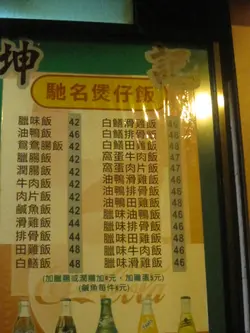 坤記
馳名煲仔飯
臘味飯 42
油鴨飯 46
鴛鴦腸飯 42
臘腸飯 42
潤腸飯 42
牛肉飯 42
肉片飯 42
鹹魚飯 42
滑雞飯 44
排骨飯 44
田雞飯 48
白鱔飯 48
白鱔滑雞飯 46
白鱔排骨飯 46
白鱔田雞飯 48
窩蛋牛肉飯 47
窩蛋肉片飯 47
油鴨滑雞飯 46
油鴨排骨飯 46
油鴨田雞飯 48
臘味油鴨飯 46
臘味滑雞飯 46
臘味排骨飯 46
臘味田雞飯 48